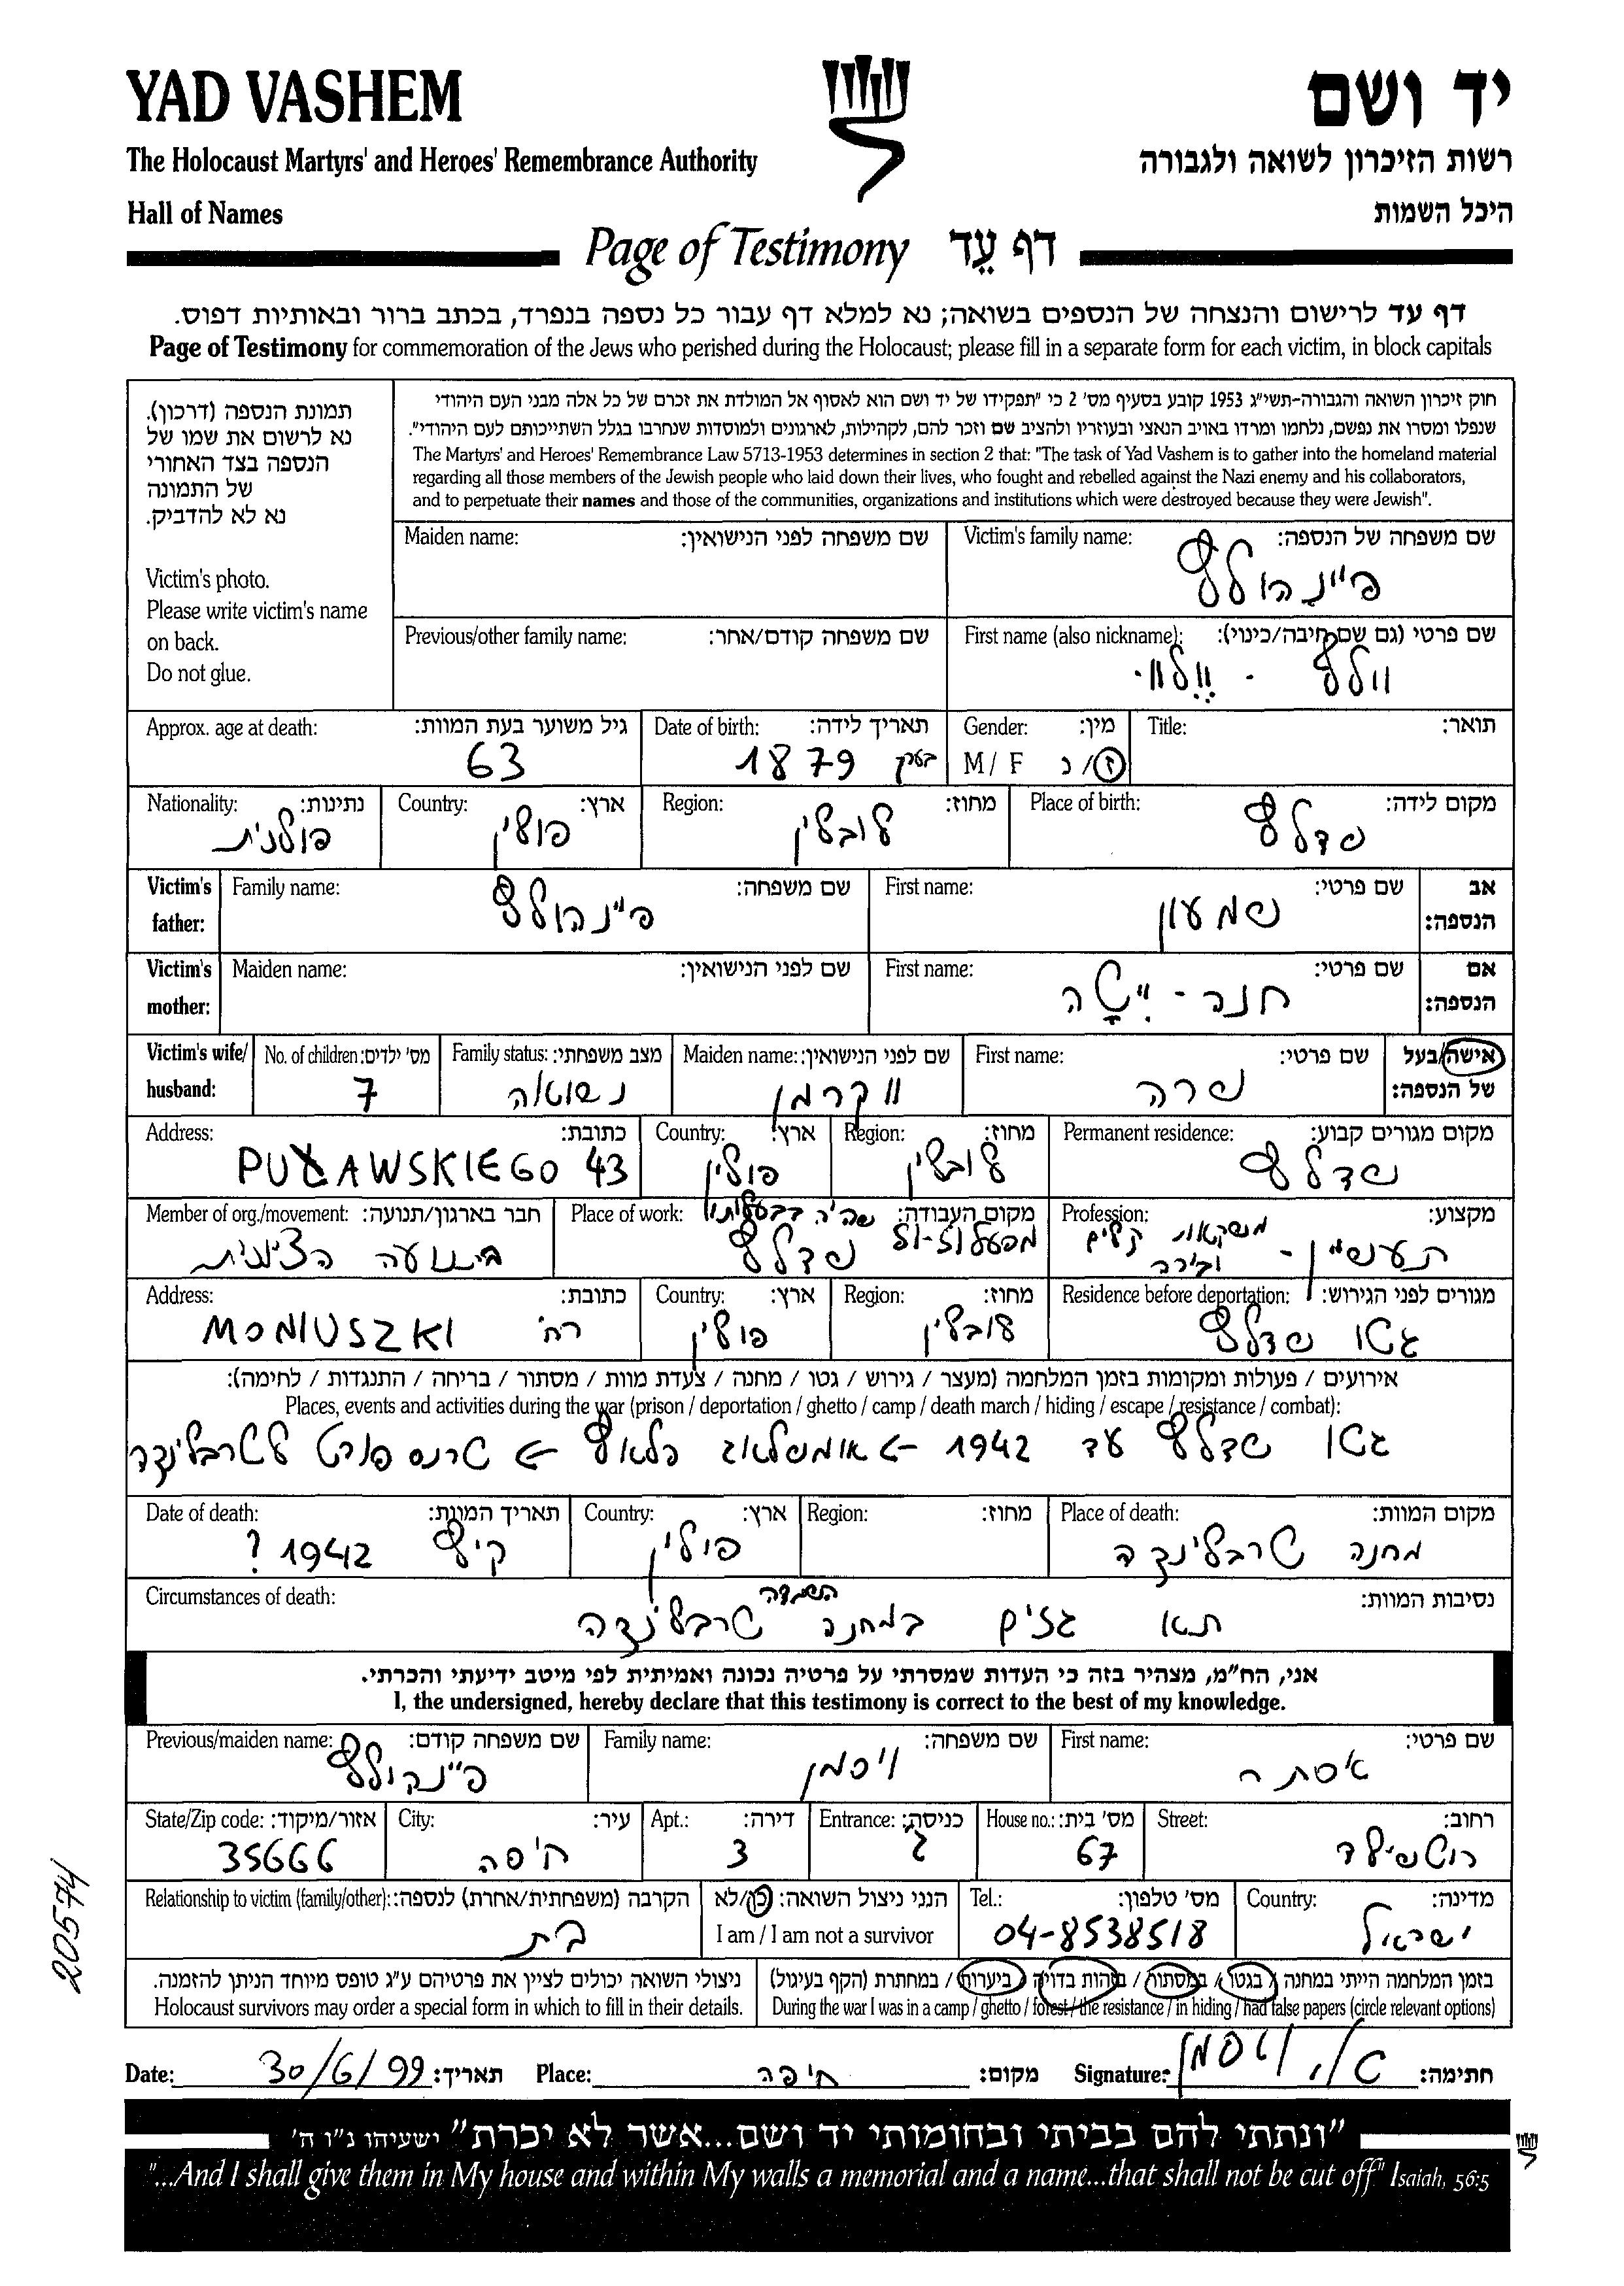 YAD VASHEM
יד ושם
The Holocaust Martyrs' and Heroes' Remembrance Authority
רשות הזיכרון לשואה ולגבורה
Hall of Names
היכל השמות
Page of Testimony דף עֵד
דף עד לרישום והנצחה של הנספים בשואה; נא למלא דף עבור כל נספה בנפרד, בכתב ברור ובאותיות דפוס.
Page of Testimony for commemoration of the Jews who perished during the Holocaust; please fill in a separate form for each victim, in block capitals
תמונת הנספה (דרכון).
נא לרשום את שמו של
הנספה בצד האחורי
של התמונה
נא לא להדביק.
Victim's photo.
Please write victim's name
on back.
Do not glue.
חוק זיכרון השואה והגבורה-תשי"ג 1953 קובע בסעיף מס' 2 כי "תפקידו של יד ושם הוא לאסוף אל המולדת את זכרם של כל אלה מבני העם היהודי
שנפלו ומסרו את נפשם, נלחמו ומרדו באויב הנאצי ובעוזריו ולהציב שם וזכר להם, לקהילות, לארגונים ולמוסדות שנחרבו בגלל השתייכותם לעם היהודי".
The Martyrs' and Heroes' Remembrance Law 5713-1953 determines in section 2 that: "The task of Yad Vashem is to gather into the homeland material
regarding all those members of the Jewish people who laid down their lives, who fought and rebelled against the Nazi enemy and his collaborators,
and to perpetuate their names and those of the communities, organizations and institutions which were destroyed because they were Jewish".
Victim's family name: שם משפחה של הנספה:
פיינהולץ
Maiden name: שם משפחה לפני הנישואין:
First name (also nickname): שם פרטי (גם שם חיבה/כינוי):
וולף - וועלוו
Previous/other family name: שם משפחה קודם/אחר:
Title: תואר:
Gender: מין:
M / F ז/נ
Date of birth: תאריך לידה:
1879
Approx. age at death: גיל משוער בעת המוות:
63
Place of birth: מקום לידה:
שדלץ
Region: מחוז:
לובלין
Country: ארץ:
פולין
Nationality: נתינות:
פולנית
Victim's father: אב הנספה:
First name: שם פרטי:
שמעון
Family name: שם משפחה:
פיינהולץ
Victim's mother: אם הנספה:
First name: שם פרטי:
חנה -
Maiden name: שם לפני הנישואין:
Victim's wife/ husband: אישה/בעל של הנספה:
First name: שם פרטי:
שרה
Maiden name: שם לפני הנישואין:
ווקרמן
Family status: מצב משפחתי:
נשואה
No. of children: מס' ילדים:
7
Permanent residence: מקום מגורים קבוע:
שדלץ
Region: מחוז:
לובלין
Country: ארץ:
פולין
Address: כתובת:
PUŁAWSKIEGO 43
Profession: מקצוע:
תעשיין - משקאות קלים
ובירה
Place of work: מקום העבודה:
שהיה בבעלותו
שדלץ
Member of org./movement: חבר בארגון/תנועה:
בתנועה הציונית
Residence before deportation: מגורים לפני הגירוש:
גטו שדלץ
Region: מחוז:
לובלין
Country: ארץ:
פולין
Address: כתובת:
רח' MONIUSZKI
אירועים / פעולות ומקומות בזמן המלחמה (מעצר / גירוש / גטו / מחנה / צעדת מוות / מסתור / בריחה / התנגדות / לחימה):
Places, events and activities during the war (prison / deportation / ghetto / camp / death march / hiding / escape / resistance / combat):
גטו שדלץ עד 1942 → אומשלאג פלאץ → טרנספורט לטרבלינקה
Place of death: מקום המוות:
מחנה טרבלינקה
Region: מחוז:
Country: ארץ:
פולין
Date of death: תאריך המוות:
קיץ 1942 ?
Circumstances of death: נסיבות המוות:
תא גזים במחנה השמדה טרבלינקה
אני, הח"מ, מצהיר בזה כי העדות שמסרתי על פרטיה נכונה ואמיתית לפי מיטב ידיעתי והכרתי.
I, the undersigned, hereby declare that this testimony is correct to the best of my knowledge.
First name: שם פרטי:
אסתר
Family name: שם משפחה:
ויסמן
Previous/maiden name: שם משפחה קודם:
פיינהולץ
Street: רחוב:
רוטשילד
House no.: מס' בית:
67
Entrance: כניסה:
Apt.: דירה:
3
City: עיר:
חיפה
State/Zip code: אזור/מיקוד:
35666
Country: מדינה:
ישראל
Tel.: מס' טלפון:
04-8538518
הנני ניצול השואה: כן/לא
I am / I am not a survivor
Relationship to victim (family/other): הקרבה (משפחתית/אחרת) לנספה:
בת
בזמן המלחמה הייתי במחנה / בגטו / במסתור / בזהות בדויה / ביערות / במחתרת (הקף בעיגול)
During the war I was in a camp / ghetto / forest / the resistance / in hiding / had false papers (circle relevant options)
ניצולי השואה יכולים לציין את פרטיהם ע"ג טופס מיוחד הניתן להזמנה.
Holocaust survivors may order a special form in which to fill in their details.
Date: 30/6/99 תאריך: Place: חיפה מקום: Signature: א. ויסמן חתימה:
"ונתתי להם בביתי ובחומותי יד ושם...אשר לא יכרת" ישעיהו נ"ו ה'
"...And I shall give them in My house and within My walls a memorial and a name...that shall not be cut off" Isaiah, 56:5
20574